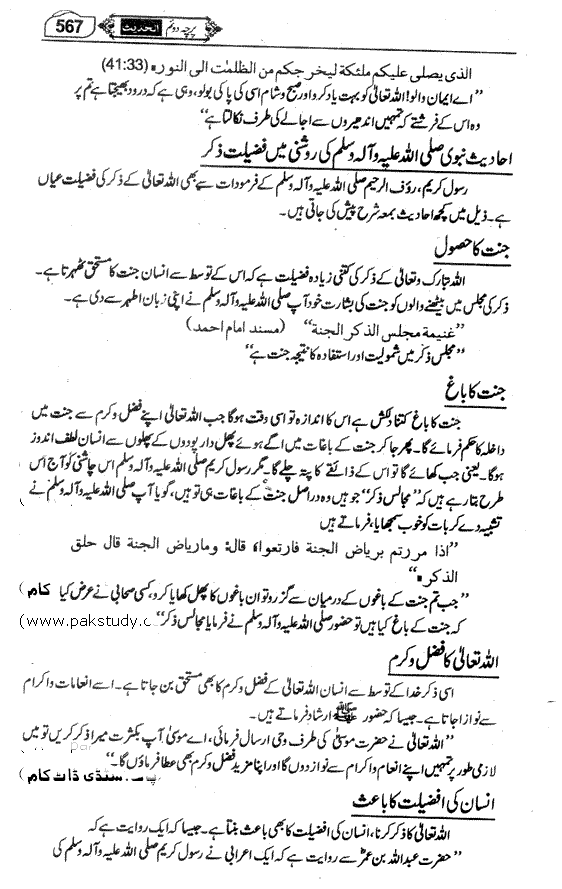 567 الحدیث پرچہ دوئم
الذی یصلی علیکم ملئکة لیخر جکم من الظلمٰت الی النور۰ (41:33)
”اے ایمان والو! اللہ تعالیٰ کو بہت یاد کرو اور صبح و شام اسی کی پاکی بولو، وہی ہے کہ درود بھیجتا ہے تم پر
وہ اس کے فرشتے کہ تمہیں اندھیروں سے اجالے کی طرف نکالتا ہے“
احادیث نبوی صلی اللہ علیہ وآلہ وسلم کی روشنی میں فضیلت ذکر
رسول کریم، رؤف الرحیم صلی اللہ علیہ وآلہ وسلم کے فرمودات سے بھی اللہ تعالیٰ کے ذکر کی فضیلت عیاں
ہے۔ ذیل میں کچھ احادیث بمعہ شرح پیش کی جاتی ہیں۔
جنت کا حصول
اللہ تبارک وتعالیٰ کے ذکر کی کتنی زیادہ فضیلت ہے کہ اس کے توسط سے انسان جنت کا مستحق ٹھہرتا ہے۔
ذکر کی مجلس میں بیٹھنے والوں کو جنت کی بشارت خود آپ صلی اللہ علیہ وآلہ وسلم نے اپنی زبان اطہر سے دی ہے۔
”غنیمة مجلس الذکر الجنة“ (مسند امام احمد)
”مجلس ذکر میں شمولیت اور استفادہ کا نتیجہ جنت ہے“
جنت کا باغ
جنت کا باغ کتنا دلکش ہے اس کا اندازہ تو اسی وقت ہوگا جب اللہ تعالیٰ اپنے فضل وکرم سے جنت میں
داخلہ کا حکم فرمائے گا۔ پھر جا کر جنت کے باغات میں اگے ہوئے پھل دار پودوں کے پھلوں سے انسان لطف اندوز
ہوگا۔ یعنی جب کھائے گا تو اس کے ذائقے کا پتہ چلے گا۔ مگر رسول کریم صلی اللہ علیہ وآلہ وسلم اس چاشنی کو آج اس
طرح بتا رہے ہیں کہ ”مجالس ذکر“ جو ہیں وہ دراصل جنت کے باغات ہی تو ہیں، گویا آپ صلی اللہ علیہ وآلہ وسلم نے
تشبیہ دے کر بات کو خوب سمجھایا، فرماتے ہیں
”اذا مررتم بریاض الجنة فارتعوا، قال: وماریاض الجنة قال حلق
الذکر۰“
”جب تم جنت کے باغوں کے درمیان سے گزرو تو ان باغوں کا پھل کھایا کرو، کسی صحابی نے عرض کیا کام
کہ جنت کے باغ کیا ہیں تو حضور صلی اللہ علیہ وآلہ وسلم نے فرمایا مجالس ذکر“ (www.pakstudy.c
اللہ تعالیٰ کا فضل وکرم
اسی ذکر خدا کے توسط سے انسان اللہ تعالیٰ کے فضل وکرم کا بھی مستحق بن جاتا ہے۔ اسے انعامات واکرام
سے نوازا جاتا ہے۔ جیسا کہ حضور ﷺ ارشاد فرماتے ہیں۔
”اللہ تعالیٰ نے حضرت موسیٰؑ کی طرف وحی ارسال فرمائی، اے موسیٰ آپ بکثرت میرا ذکر کریں تو میں
لازمی طور پر تمہیں اپنے انعام واکرام سے نوازدوں گا اور اپنا مزید فضل وکرم بھی عطا فرماؤں گا۔“
سٹڈی ڈاٹ کام)
انسان کی افضیلت کا باعث
اللہ تعالیٰ کا ذکر کرنا، انسان کی افضیلت کا بھی باعث بنتا ہے۔ جیسا کہ ایک روایت ہے کہ
”حضرت عبداللہ بن عمرؓ سے روایت ہے کہ ایک اعرابی نے رسول کریم صلی اللہ علیہ وآلہ وسلم کی